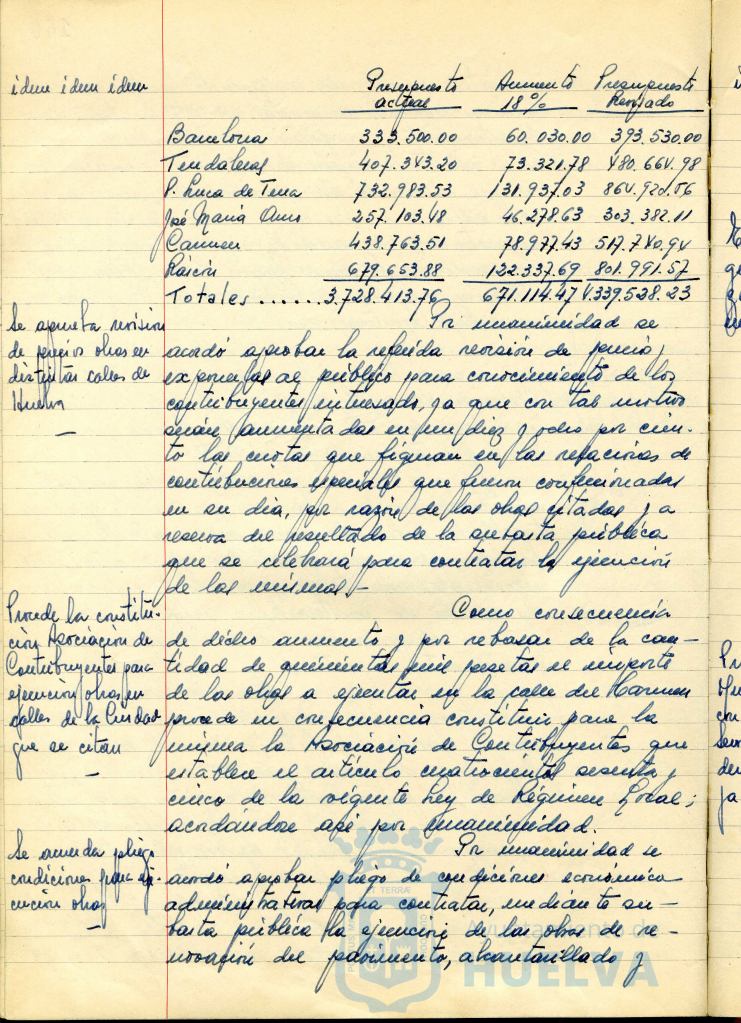 idem idem idem
Presupuesto Aumento Presupuesto
actual 18% Revisado
Barcelona 333.500.00 60.030.00 393.530.00
Tendaleras 407.343.20 73.321.78 480.664.98
P. Luca de Tena 732.983.53 131.937.03 864.920.56
José Maria Amo 257.103.48 46.278.63 303.382.11
Carmen 438.763.51 78.977.43 517.740.94
Rascón 679.653.88 122.337.69 801.991.57
Totales ...... 3.728.413.76 671.114.47 4.339.528.23
Se aprueba revisión
de precios obras en
distintas calles de
Huelva
—
Por unanimidad se
acordó aprobar la referida revisión de precios,
exponerlas al público para conocimiento de los
contribuyentes interesados, ya que con tal motivo
serán aumentadas en un diez y ocho por cien-
to las cuotas que figuran en las relaciones de
contribuciones especiales que fueron confeccionadas
en su dia, por razón de las obras citadas y a
reserva del resultado de la subasta pública
que se celebrará para contratar la ejecución
de las mismas.-
Procede la constitu-
ción Asociación de
Contribuyentes para
ejecución obras en
calles de la Ciudad
que se citan
—
Como consecuencia
de dicho aumento y por rebasar de la can-
tidad de quinientas mil pesetas el importe
de las obras a ejecutar en la calle del Carmen
procede en consecuencia constituir para la
misma la Asociación de Contribuyentes que
establece el artículo cuatrocientos sesenta y
cinco de la vigente Ley de Régimen Local;
acordándose asi por unanimidad.
Se acuerda pliego
condiciones para eje-
cución obras
—
Por unanimidad se
acordó aprobar pliego de condiciones economico
administrativas para contratar, mediante su-
basta pública la ejecución de las obras de re-
novación del pavimento, alcantarillado y
Ayuntamiento de
HUELVA